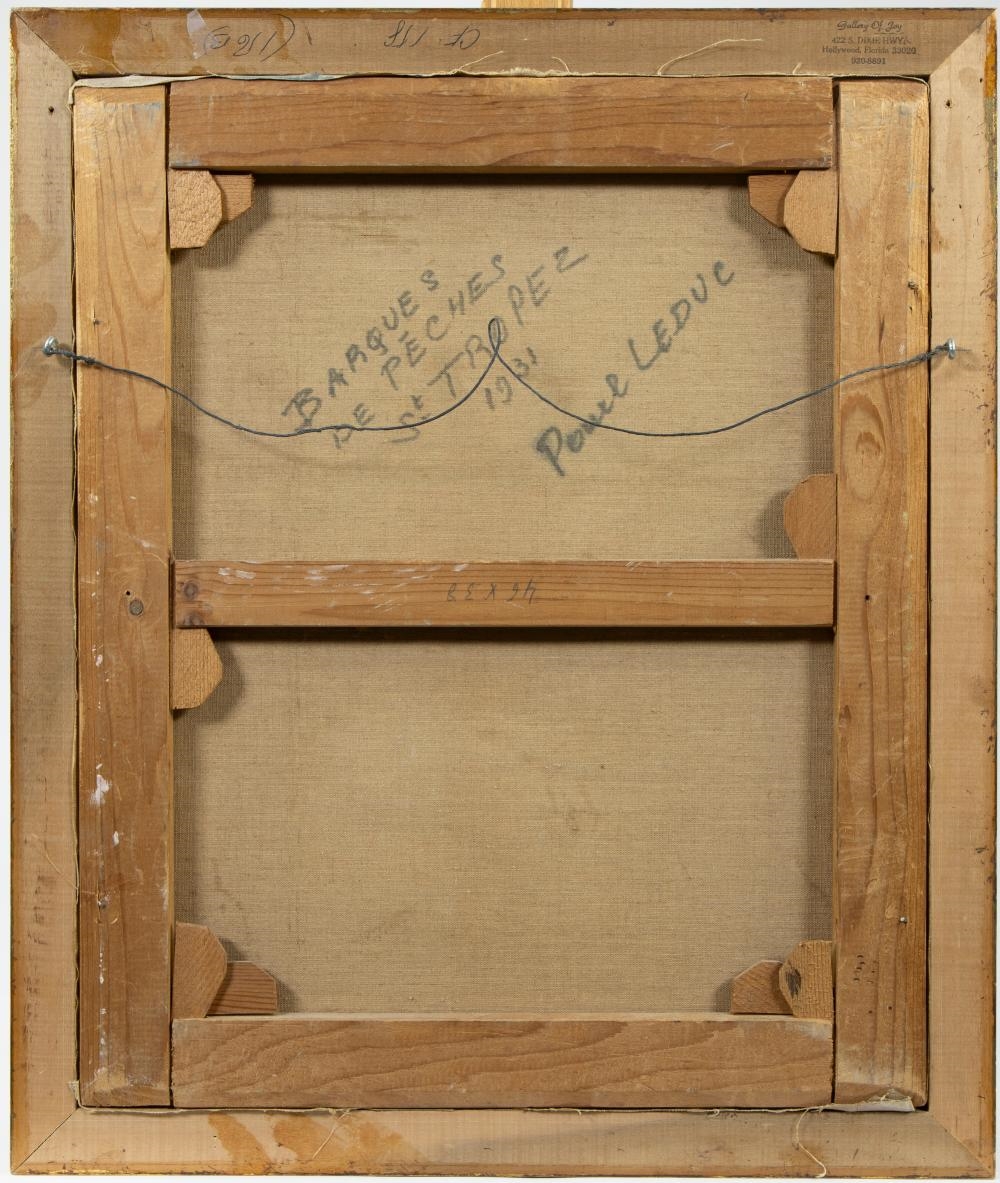 Gallery Of Joy
422 S. DIXIE HWY.
Hollywood, Florida 33020
920-8891
CF 118
BARQUES
DE PECHES
St TROPEZ
1931
Paul LEDUC
46 X 38